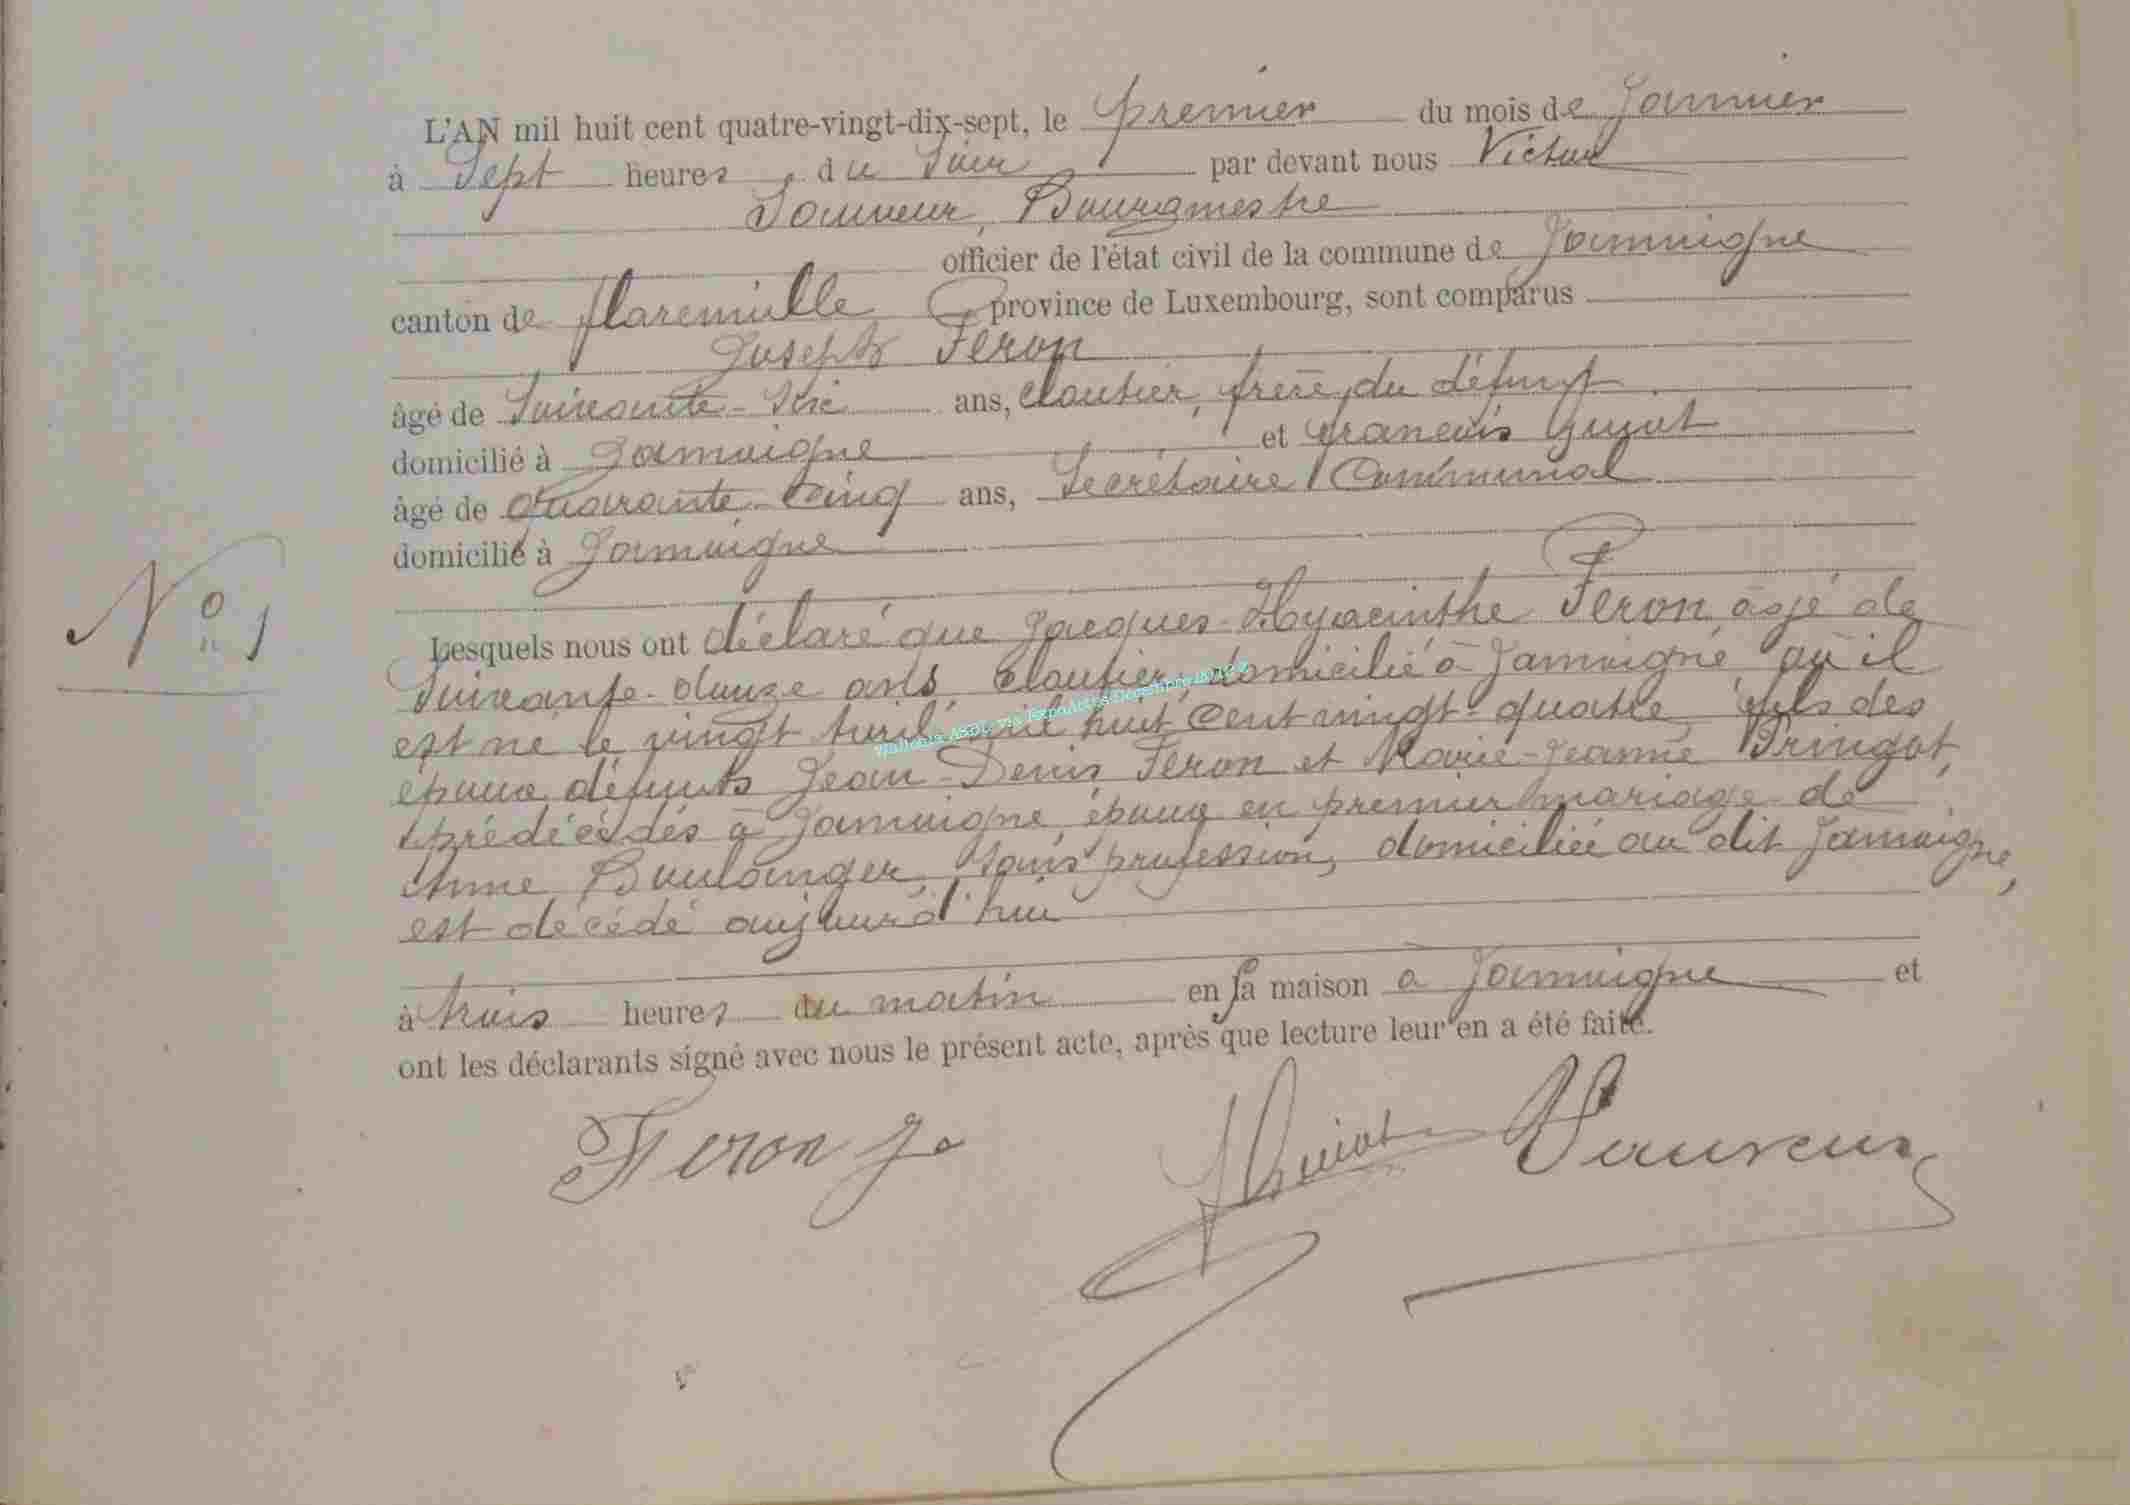 L'AN mil huit cent quatre-vingt-dix-sept, le premier du mois de Janvier
à Sept heures du Soir par devant nous Victor
Sauveur, Bourgmestre
officier de l'état civil de la commune de Jamoigne
canton de florenville province de Luxembourg, sont comparus
Joseph Feron
âgé de Soixante-six ans, cloutier, frère du défunt
domicilié à Jamoigne et françois Guiot
âgé de quarante-cinq ans, Secrétaire Communal
domicilié à Jamoigne
N° 1
Lesquels nous ont déclaré que Jacques-Hyacinthe Feron, âgé de
Soixante-douze ans, cloutier, domicilié à Jamoigne, où il
est né le vingt avril mil huit cent vingt-quatre, fils des
époux défunts Jean-Denis Feron et Marie-Jeanne Pringot,
prédécédés à Jamoigne, époux en premier mariage de
Anne Boulanger, sans profession, domiciliée au dit Jamoigne,
est décédé aujourd'hui
à trois heures du matin en sa maison à Jamoigne et
ont les déclarants signé avec nous le présent acte, après que lecture leur en a été faite.
Feron J. Guiot Sauveur